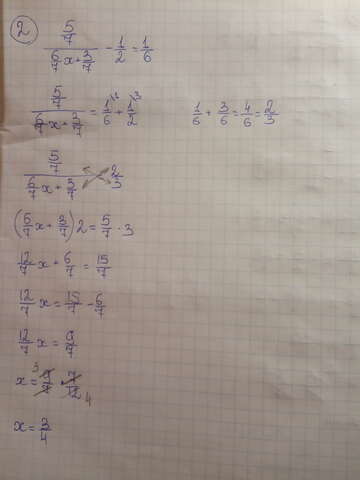 2
(5/7)/(6/7 x + 3/7) - 1/2 = 1/6
(5/7)/(6/7 x + 3/7) = 1/6 + 1/2 \3    1/6 + 3/6 = 4/6 = 2/3
(5/7)/(6/7 x + 3/7) 2/3
(6/7 x + 3/7) 2 = 5/7 · 3
12/7 x + 6/7 = 15/7
12/7 x = 15/7 - 6/7
12/7 x = 9/7
x = 9/7 3 · 7/12 4
x = 3/4